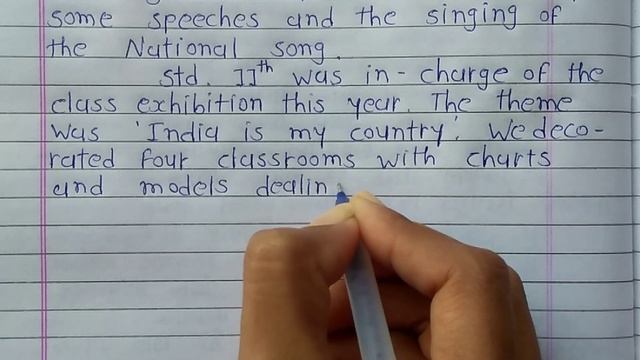 some speeches and the singing of
the National song.
Std. IIth was in-charge of the
class exhibition this year. The theme
was 'India is my country'. We deco-
rated four classrooms with charts
and models dealin